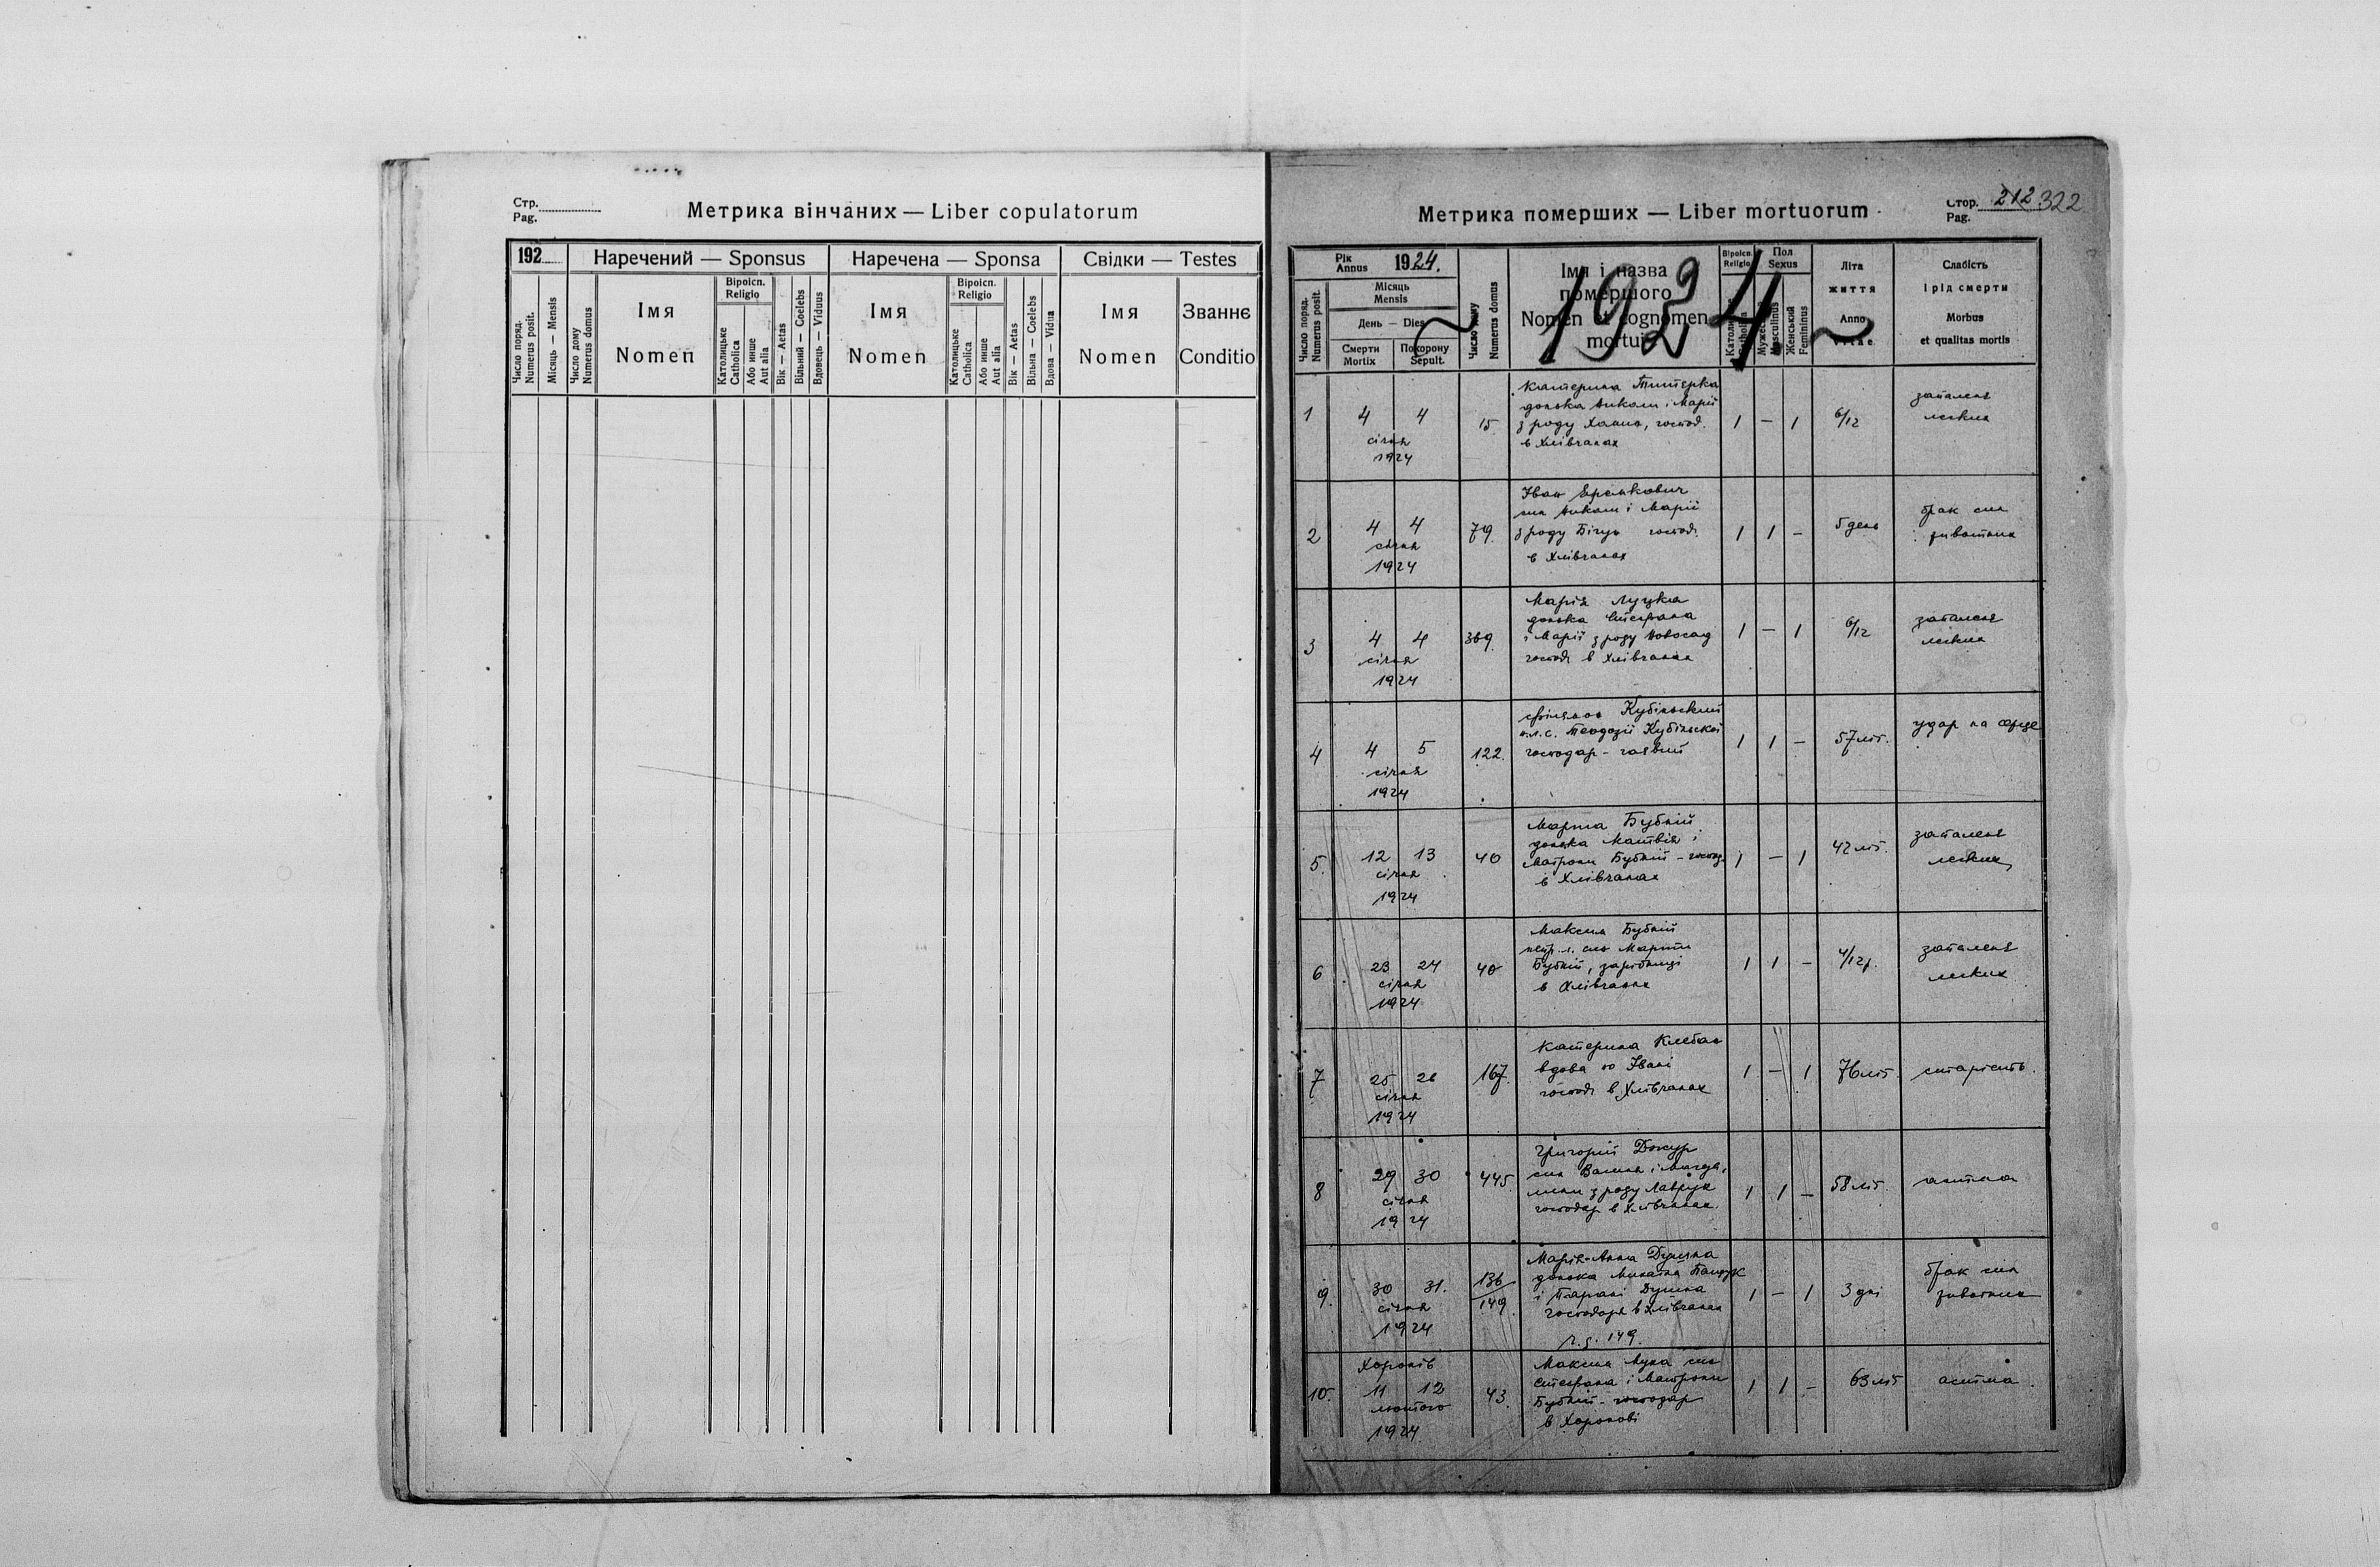 Стр.
Pag.
Метрика вінчаних — Liber copulatorum
192
Наречений — Sponsus
Наречена — Sponsa
Свідки — Testes
Число поряд.
Numerus posit.
Місяць — Mensis
Число дому
Numerus domus
Імя
Nomen
Віроісп.
Religio
Католицьке
Catholica
Або инше
Aut alia
Вік — Aetas
Вільний — Coelebs
Вдовець — Viduus
Імя
Nomen
Віроісп.
Religio
Католицьке
Catholica
Або инше
Aut alia
Вік — Aetas
Вільна — Coelebs
Вдова — Vidua
Імя
Nomen
Званнє
Conditio
Метрика померших — Liber mortuorum
Стор. 212 322
Pag.
Рік
Annus 1924.
Число поряд.
Numerus posit.
Місяць
Mensis
День — Dies
Смерти
Mortix
Похорону
Sepult.
Число дому
Numerus domus
Імя і назва
помершого
Nomen et cognomen
mortui
1924
Віроісп.
Religio
Пол
Sexus
Мужеський
Masculinus
Женський
Femininus
Літа
життя
Anno
vitae
Слабість
і рід смерти
Morbus
et qualitas mortis
1 4 4 15 1 — 1 6/12
січня
1924
Катерина
донька Миколи і Марії
з роду господ.
в Хлівчанах
запаленя
легких
2 4 4 79. 1 1 — 5 день
січня
1924
Іван Яремкович
син Миколи і Марії
з роду Бігун господ.
в Хлівчанах
брак сил
животних
3 4 4 369. 1 — 1 6/12
січня
1924
Марія Луцка
донька Стефана
і Марії з роду Новосад
господ. в Хлівчанах
запаленя
легких
4 4 5 122. 1 1 — 57 літ.
січня
1924
Кубінський
Теодозії Кубінської
господар -
удар на серце
5. 12 13 40 1 — 1 42 літ.
січня
1924
Марта Бубній
донька Матвія і
Матрони Бубній - господ.
в Хлівчанах
запаленя
легких
6 23 24 40 1 1 — 4/12
січня
1924
Максим Бубній
син Марти
Бубній, зарібниці
в Хлівчанах
запаленя
легких
7 25 26 167. 1 — 1 76 літ.
січня
1924
Катерина Клебан
вдова по Івані
господ. в Хлівчанах
старість.
8 29 30 445. 1 1 — 58 літ.
січня
1924
Григорій
син і Магда-
лени з роду Лаврук
господар в Хлівчанах
астма
9. 30 31. 136/149. 1 — 1 3 дні
січня
1924
Марія-Анна Душна
донька Михайла
і Парані Душна
господаря в Хлівчанах
ч. д. 149.
брак сил
животних
Хоронів
10. 11 12 43. 1 1 — 63 літ
лютого
1924
Максим син
Стефана і Матрони
Бубній - господар
в Хоронові
астма.